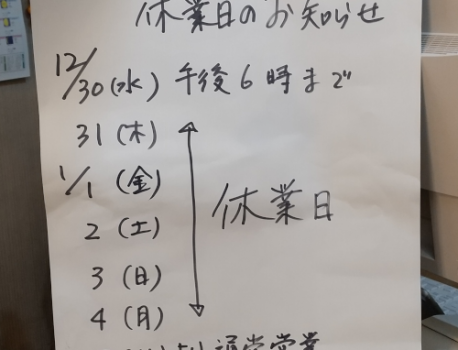 休業日のお知らせ
12/30(水) 午後6時まで
31(木)
1/1(金)
2(土)
休業日
3(日)
4(月)
より通常営業